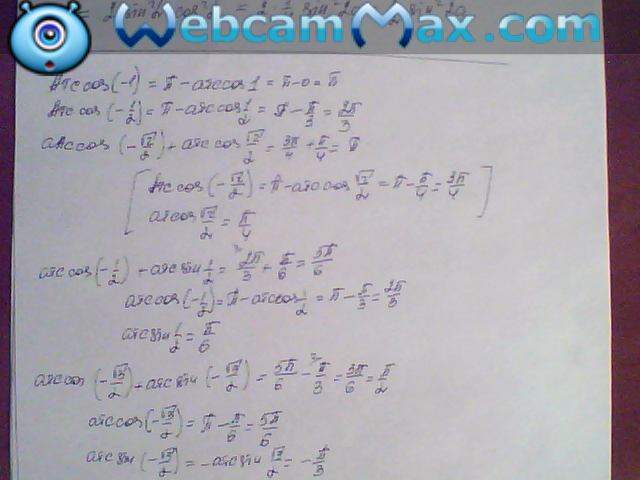 WebcamMax.com
Arccos(-1) = π - arccos 1 = π - 0 = π
Arccos(-1/2) = π - arccos 1/2 = π - π/3 = 2π/3
arccos(-√2/2) + arccos √2/2 = 3π/4 + π/4 = π
[Arccos(-√2/2) = π - arccos √2/2 = π - π/4 = 3π/4
arccos √2/2 = π/4]
arccos(-1/2) + arcsin 1/2 = 2π/3 + π/6 = 5π/6
arccos(-1/2) = π - arccos 1/2 = π - π/3 = 2π/3
arcsin 1/2 = π/6
arccos(-√3/2) + arcsin(-√3/2) = 5π/6 - π/3 = 3π/6 = π/2
arccos(-√3/2) = π - π/6 = 5π/6
arcsin(-√3/2) = -arcsin √3/2 = -π/3